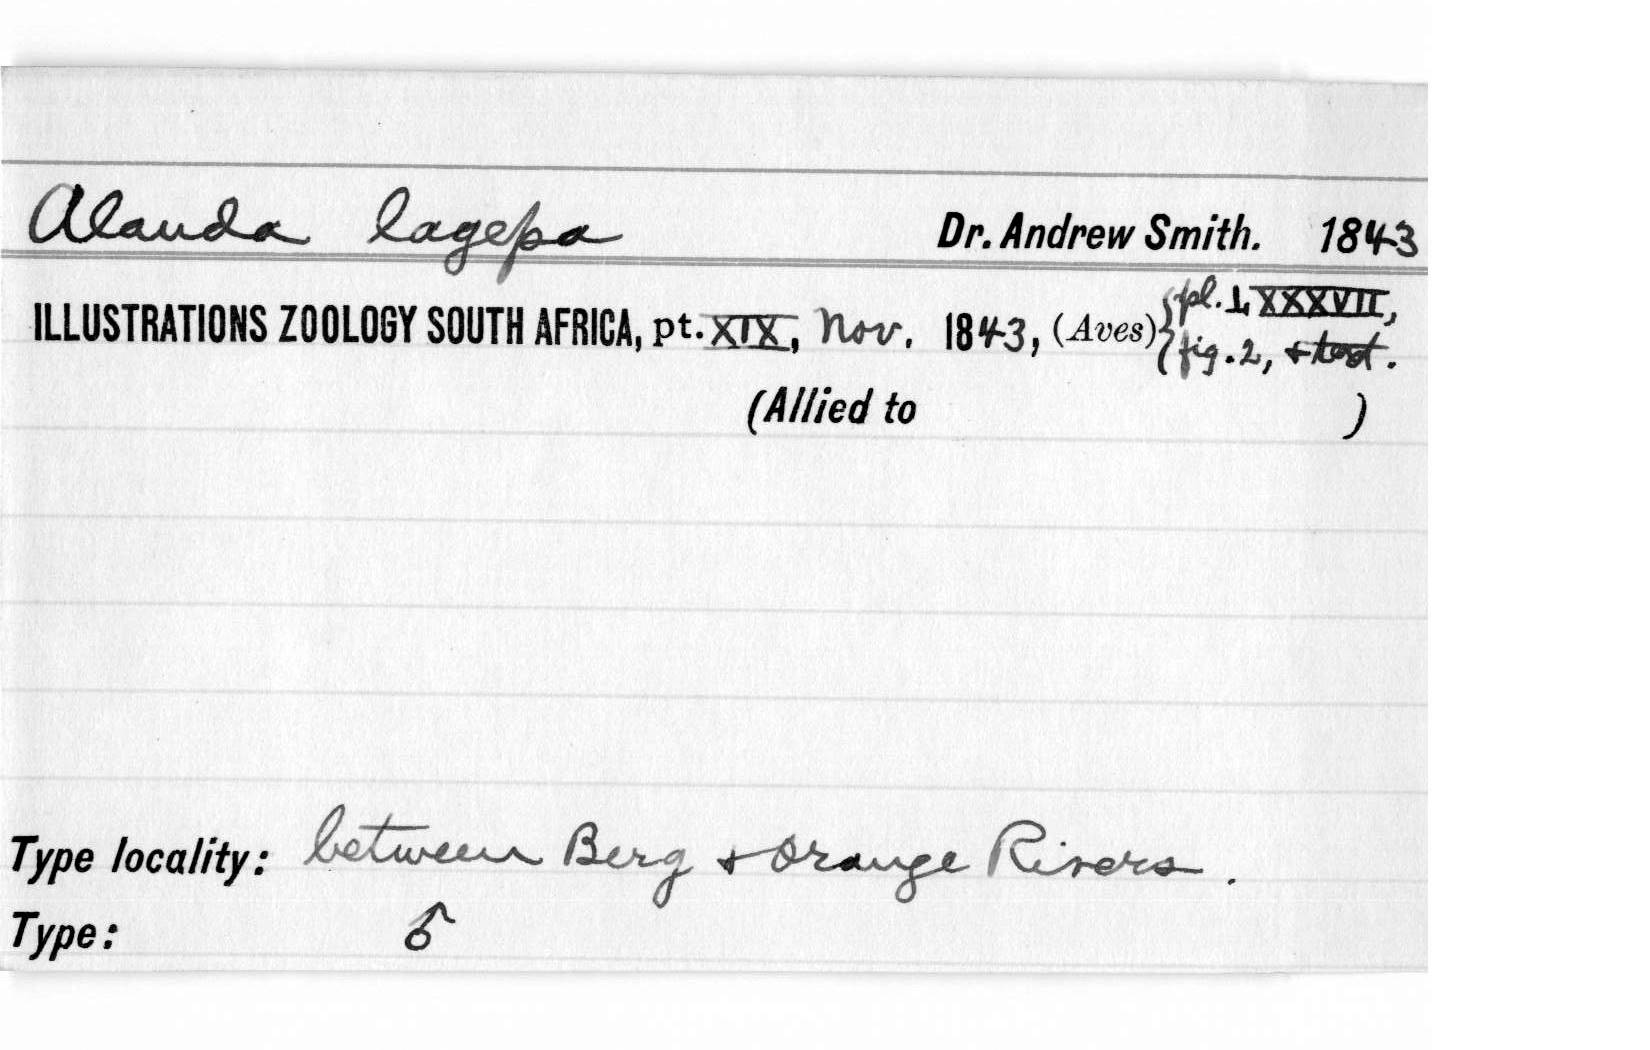 Alauda lagepa Dr. Andrew Smith. 1843
ILLUSTRATIONS ZOOLOGY SOUTH AFRICA, pt. XIX, Nov. 1843, (Aves) { pl. LXXXVII,
fig. 2, + text.
(Allied to )
Type locality: between Berg + Orange Rivers.
Type: ♂